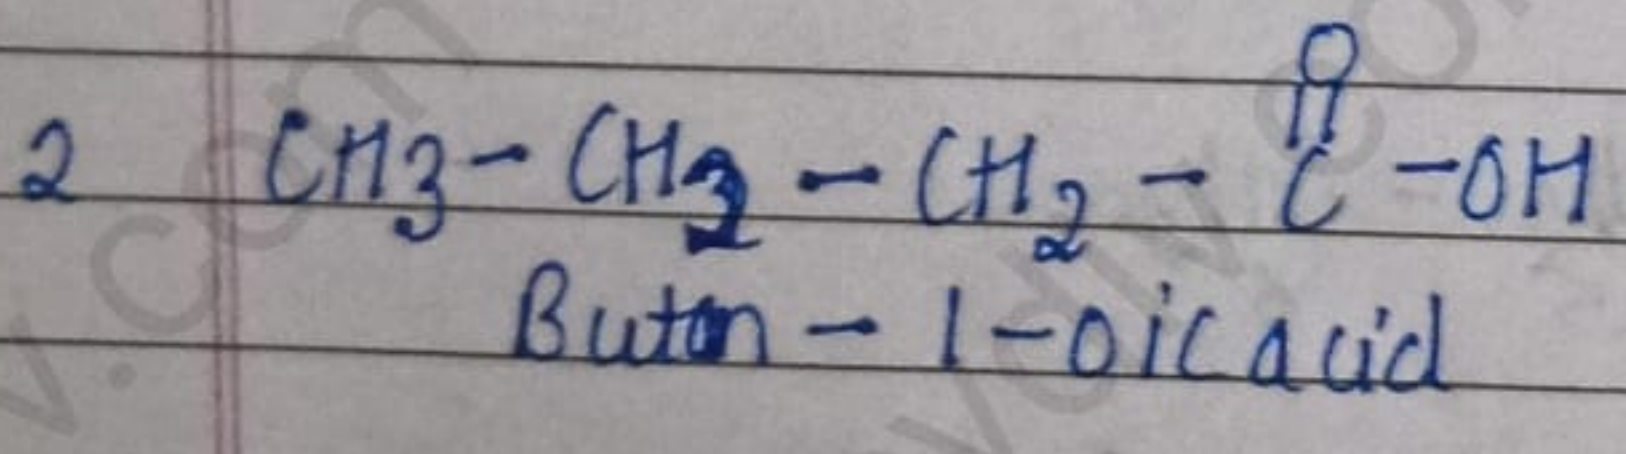 O
2 CH3 - CH2 - CH2 - C - OH
Butan - 1 - oic acid